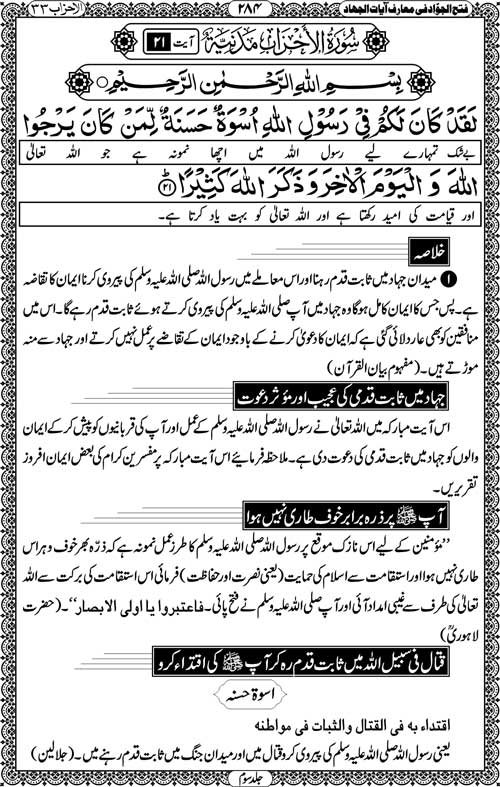 الاحزاب ۳۳ ۲۸۴ فتح الجوّاد فی معارف آیات الجهاد
سُوْرَةُ الْاَحْزَابِ مَدَنِيَّةٌ آیت ۲۱
بِسْمِ اللهِ الرَّحْمٰنِ الرَّحِيْمِ
لَقَدْ كَانَ لَكُمْ فِيْ رَسُوْلِ اللهِ اُسْوَةٌ حَسَنَةٌ لِّمَنْ كَانَ يَرْجُوا
بےشک تمہارے لیے رسول اللہ میں اچھا نمونہ ہے جو اللہ تعالیٰ
اللهَ وَ الْيَوْمَ الْاٰخِرَ وَ ذَكَرَ اللهَ كَثِيْرًا ۲۱
اور قیامت کی امید رکھتا ہے اور اللہ تعالیٰ کو بہت یاد کرتا ہے۔
خلاصہ
۱ میدان جہاد میں ثابت قدم رہنا اور اس معاملے میں رسول اللہ صلی اللہ علیہ وسلم کی پیروی کرنا ایمان کا تقاضہ
ہے۔ پس جس کا ایمان کامل ہوگا وہ جہاد میں آپ صلی اللہ علیہ وسلم کی پیروی کرتے ہوئے ثابت قدم رہے گا۔ اس میں
منافقین کو بھی عار دلائی گئی ہے کہ ایمان کا دعویٰ کرنے کے باوجود ایمان کے تقاضے پر عمل نہیں کرتے اور جہاد سے منہ
موڑتے ہیں۔ (مفہوم بیان القرآن)
جہاد میں ثابت قدمی کی عجیب اور مؤثر دعوت
اس آیت مبارکہ میں اللہ تعالیٰ نے رسول اللہ صلی اللہ علیہ وسلم کے عمل اور آپ کی قربانیوں کو پیش کر کے ایمان
والوں کو جہاد میں ثابت قدمی کی دعوت دی ہے۔ ملاحظہ فرمائیے اس آیت مبارکہ پر مفسرین کرام کی بعض ایمان افروز
تقریریں۔
آپ ﷺ پر ذرہ برابر خوف طاری نہیں ہوا
”مؤمنین کے لیے اس نازک موقع پر رسول اللہ صلی اللہ علیہ وسلم کا طرز عمل نمونہ ہے کہ ذرّہ بھر خوف و ہراس
طاری نہیں ہوا اور استقامت سے اسلام کی حمایت (یعنی نصرت اور حفاظت) فرمائی اس استقامت کی برکت سے اللہ
تعالیٰ کی طرف سے غیبی امداد آئی اور آپ صلی اللہ علیہ وسلم نے فتح پائی۔ فاعتبروا یا اولی الابصار“۔ (حضرت
لاہوریؒ)
قتال فی سبیل اللہ میں ثابت قدم رہ کر آپ ﷺ کی اقتداء کرو
اسوۃ حسنہ
اقتداء به فی القتال والثبات فی مواطنه
یعنی رسول اللہ صلی اللہ علیہ وسلم کی پیروی کرو قتال میں اور میدان جنگ میں ثابت قدم رہنے میں۔ (جلالین)
جلد سوم